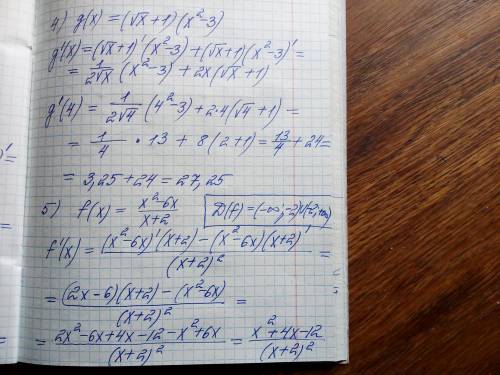 4) g(x) = (√x + 1)(x² - 3)
g'(x) = (√x + 1)'(x² - 3) + (√x + 1)(x² - 3)' =
= 1/(2√x) (x² - 3) + 2x(√x + 1)
g'(4) = 1/(2√4) (4² - 3) + 2·4(√4 + 1) =
= 1/4 · 13 + 8(2 + 1) = 13/4 + 24 =
= 3,25 + 24 = 27,25
5) f(x) = (x² - 6x)/(x + 2) D(f) = (-∞; -2)∪(-2; +∞)
f'(x) = ((x² - 6x)'(x + 2) - (x² - 6x)(x + 2)')/(x + 2)² =
= ((2x - 6)(x + 2) - (x² - 6x))/(x + 2)² =
= (2x² - 6x + 4x - 12 - x² + 6x)/(x + 2)² = (x² + 4x - 12)/(x + 2)²